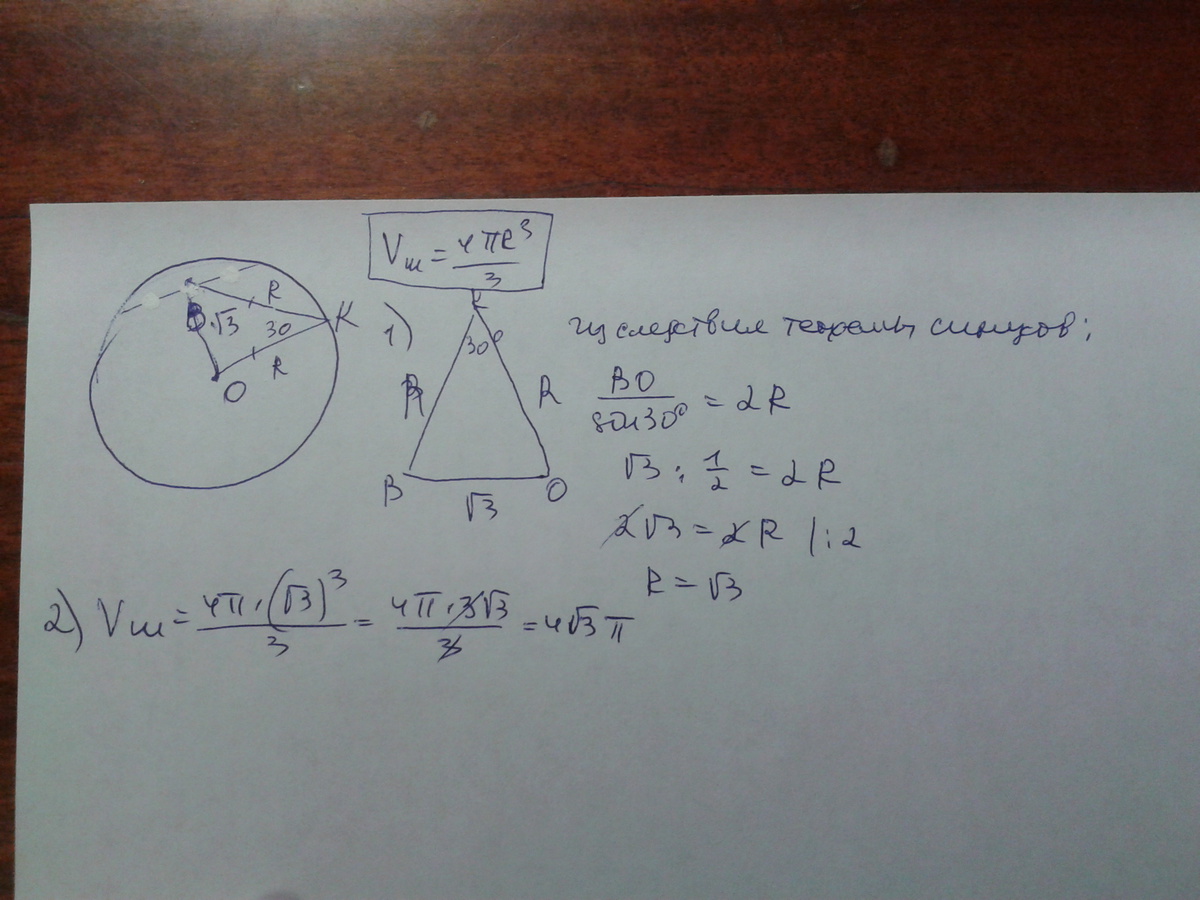 Vш = 4πR³/3
B √3 R 30 K
R
O
1) K
30°
R R
B √3 O
Из следствия теоремы синусов;
BO/sin30° = 2R
√3 : 1/2 = 2R
2√3 = 2R |:2
R = √3
2) Vш = 4π·(√3)³/3 = 4π·3√3/3 = 4√3 π